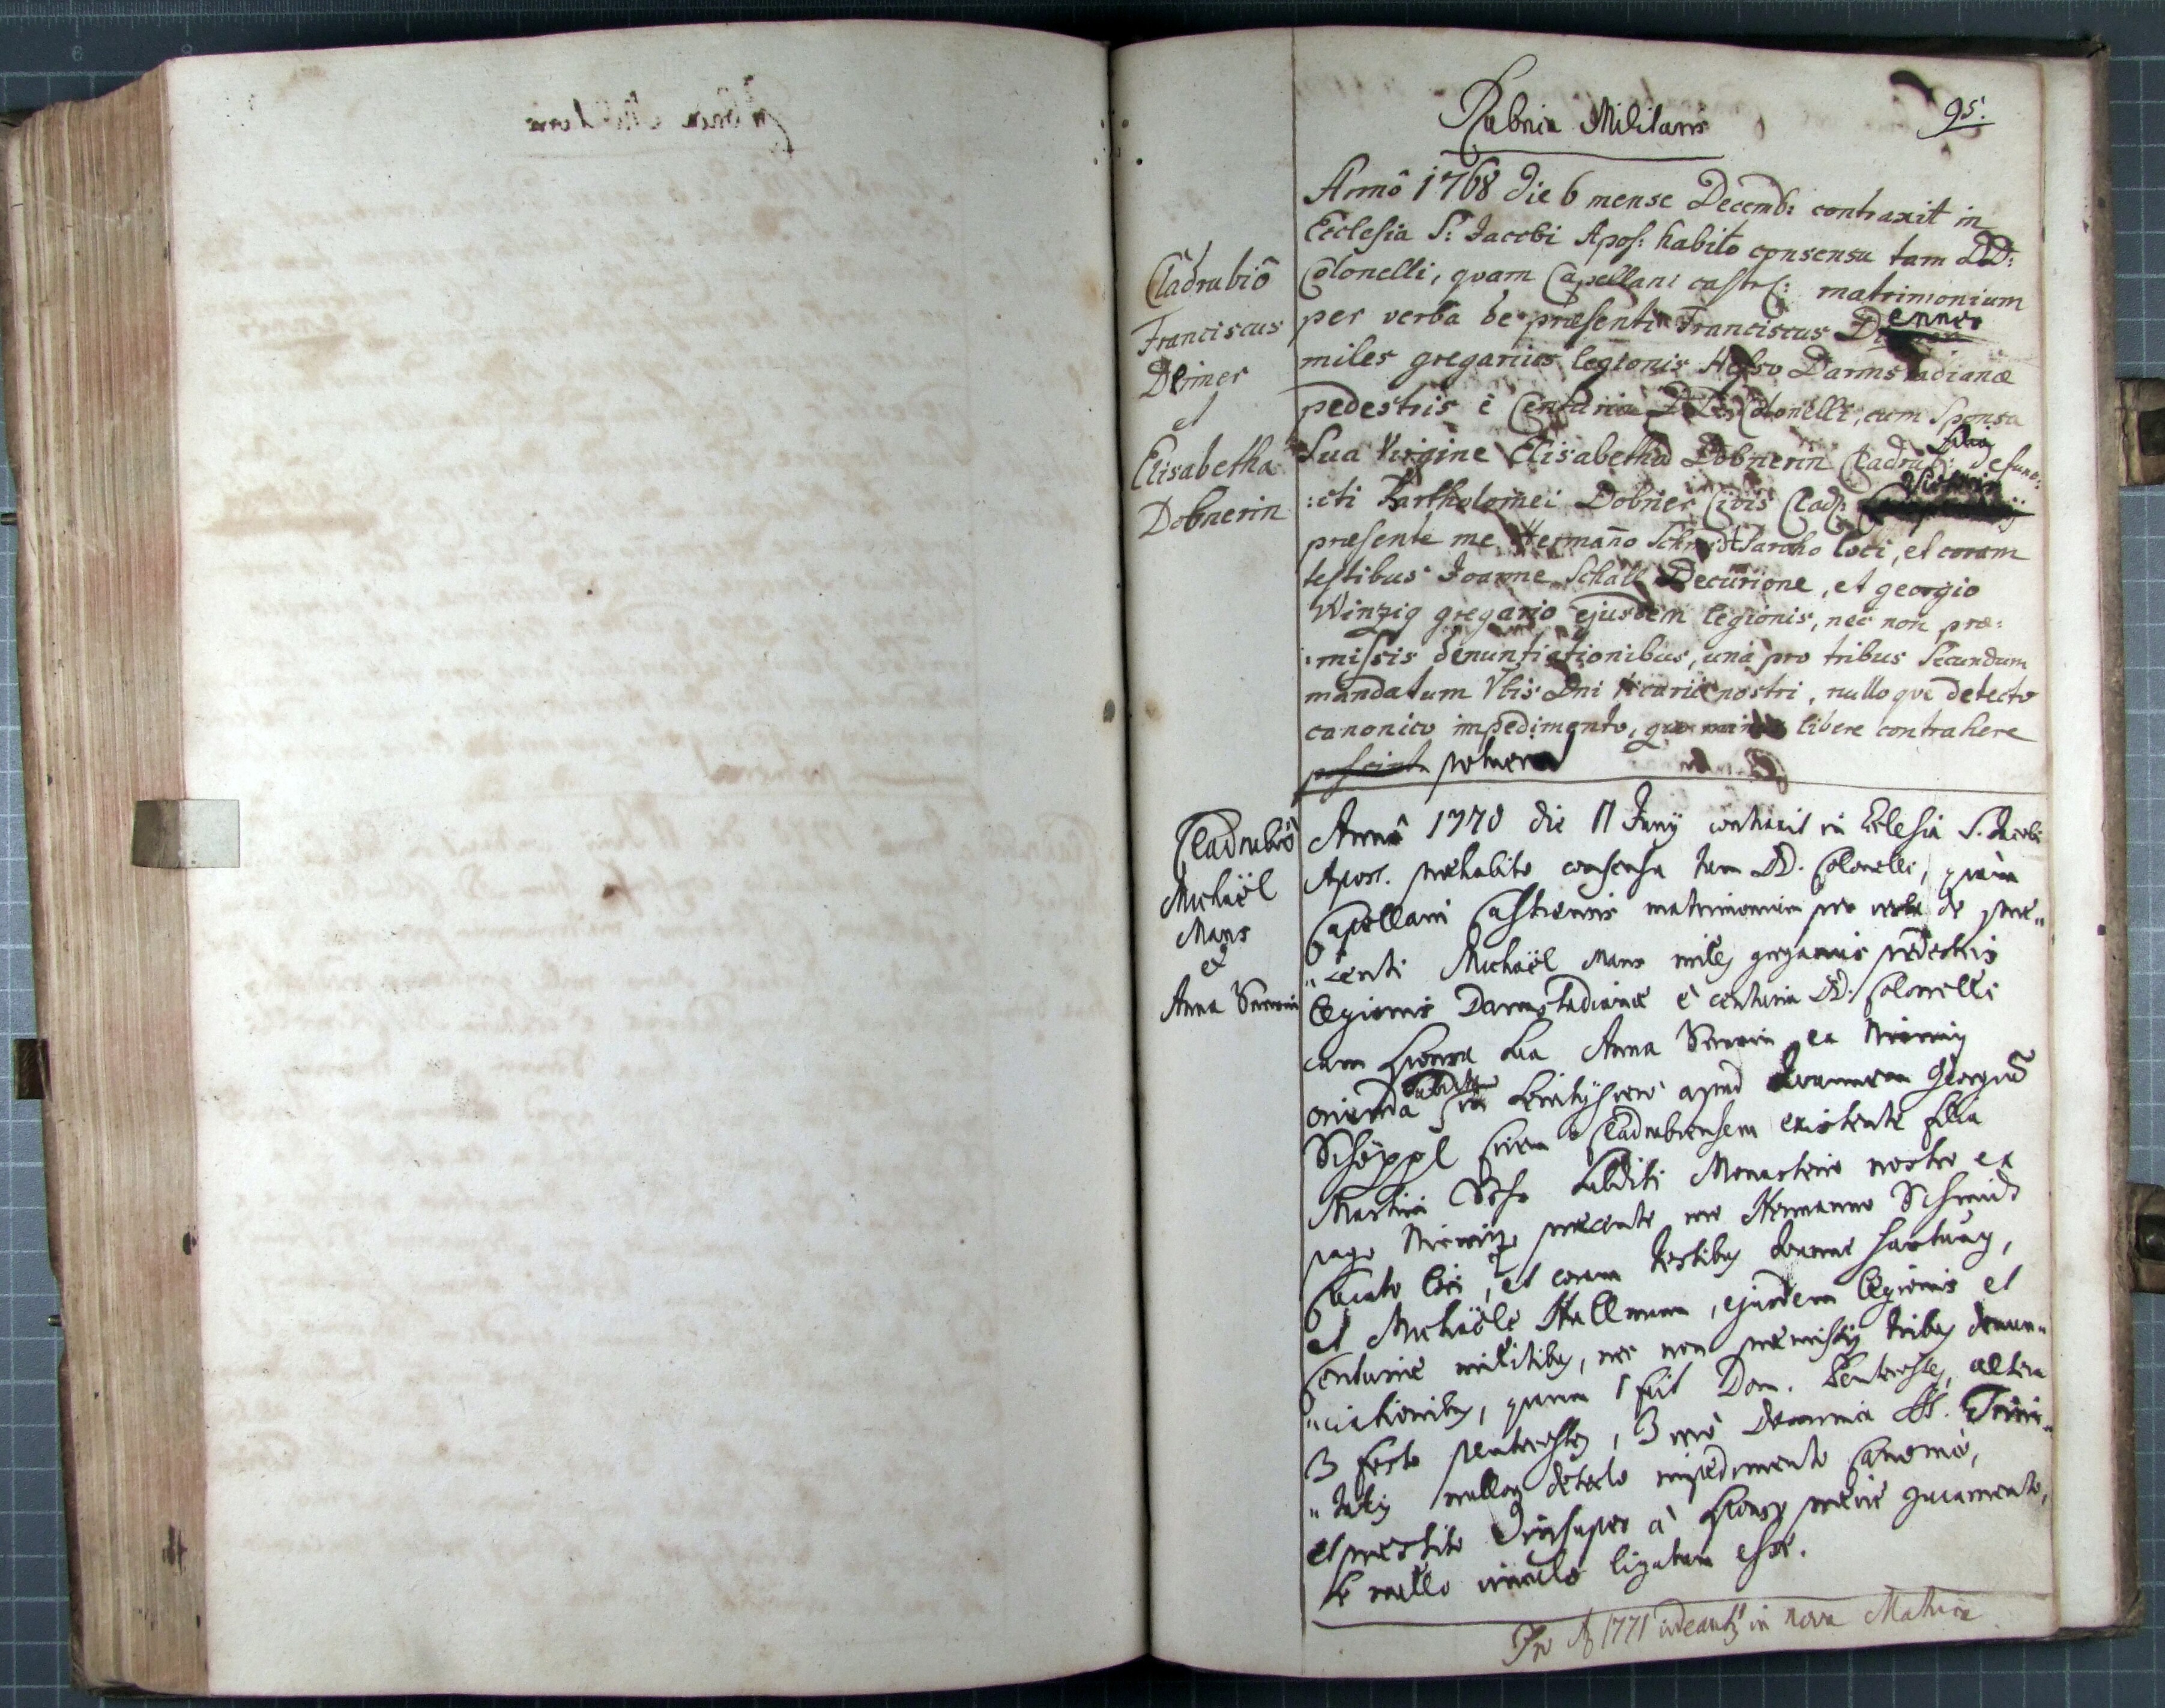 Rubrica Militaris
95.
Cladrubiô
Franciscus
Deimer
et
Elisabetha
Dobnerin
Annô 1768 die 6 mense Decemb: contraxit in
Ecclesia S: Jacobi Apos: habito consensu tam DD:
Colonelli, quam Capellani castr: matrimonium
per verba de præsenti Franciscus Denner
miles gregarius legionis Hesso Darmstadianæ
pedestris è Centuria DD: Colonelli, cum Sponsa
Sua Virgine Elisabetha Dobnerin Cladrub: filia defunc:
:cti Bartholomei Dobner Civis Clad:
præsente me Hermaño Schmidt Parocho loci, et coram
testibus Joanne Schall Decurione, et georgio
Winzig gregario ejusdem legionis, nec non præ:
:missis denuntiationibus, una pro tribus Secundum
mandatum Vbis Dni Vicarii nostri, nulloque detecto
canonico impedimento, quo minus libere contrahere
possint potuerint
Cladrubiô
Michaël
Mans
et
Anna
Annô 1770 die 11 Junÿ contraxit in Eclesia S. Jacobi
Apost. præhabito consensu tam DD. Colonelli, quàm
Capellani Castrensis matrimonium per verba de præ„
„senti Michaël Mans miles gregarius pedestris
legionis Darmstadianæ è centuria DD: Colonelli
cum sponsa sua Anna ex
oriunda apud Joannem Georgiũ
Schöppl civem Cladrubiensem existente filia
Martini subditi Monasterii nostri ex
pago præsente me Hermanno Schmidt
Curato loci, et coram testibus Joanne Hartung,
et Michaële Hallmann, ejusdem legionis et
Centuriæ militibus, nec non præmissis tribus denun„
„ciationibus, quarum 1 fuit Dom. Pentecostes, altera
3 festo pentecostes, 3 verò Dominica SS. Trini„
„tatis nulloque detecto impedimento canonico,
et præstito insuper à sponso prævie juramento,
se nullo vinculo ligatum esse.
Pro Aô 1771 videantur in nova Matrica